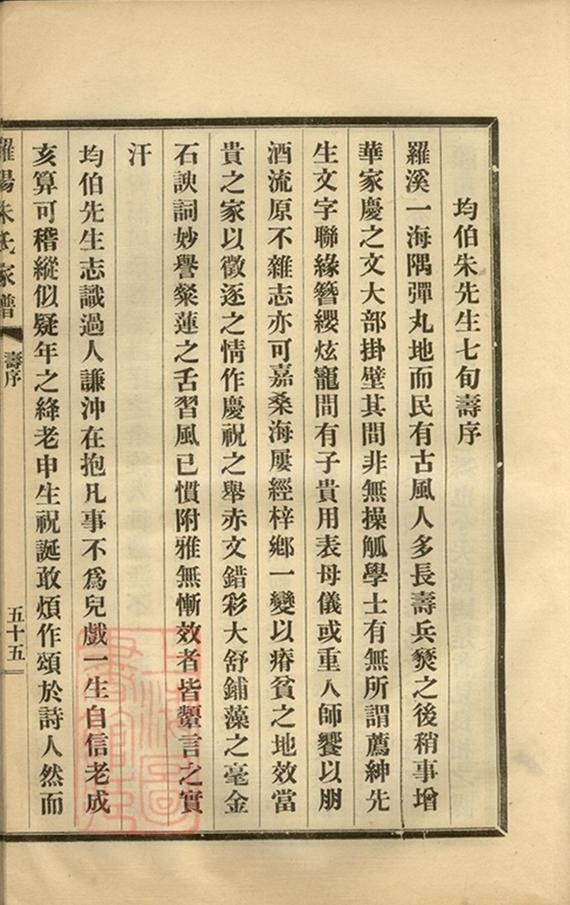 均伯朱先生七旬壽序
羅溪一海隅彈丸地而民有古風人多長壽兵燹之後稍事增
華家慶之文大部掛壁其間非無操觚學士有無所謂薦紳先
生文字聯緣簪纓炫寵間有子貴用表母儀或重人師饗以朋
酒流原不雜志亦可嘉桑海屢經梓鄉一變以瘠貧之地效當
貴之家以徵逐之情作慶祝之舉赤文錯彩大舒鋪藻之毫金
石諛詞妙譽粲蓮之舌習風已慣附雅無慚效者皆顰言之實
汗
均伯先生志識過人謙沖在抱凡事不爲兒戲一生自信老成
亥算可稽縱似疑年之絳老申生祝誕敢煩作頌於詩人然而
羅陽朱氏家譜
壽序
五十五